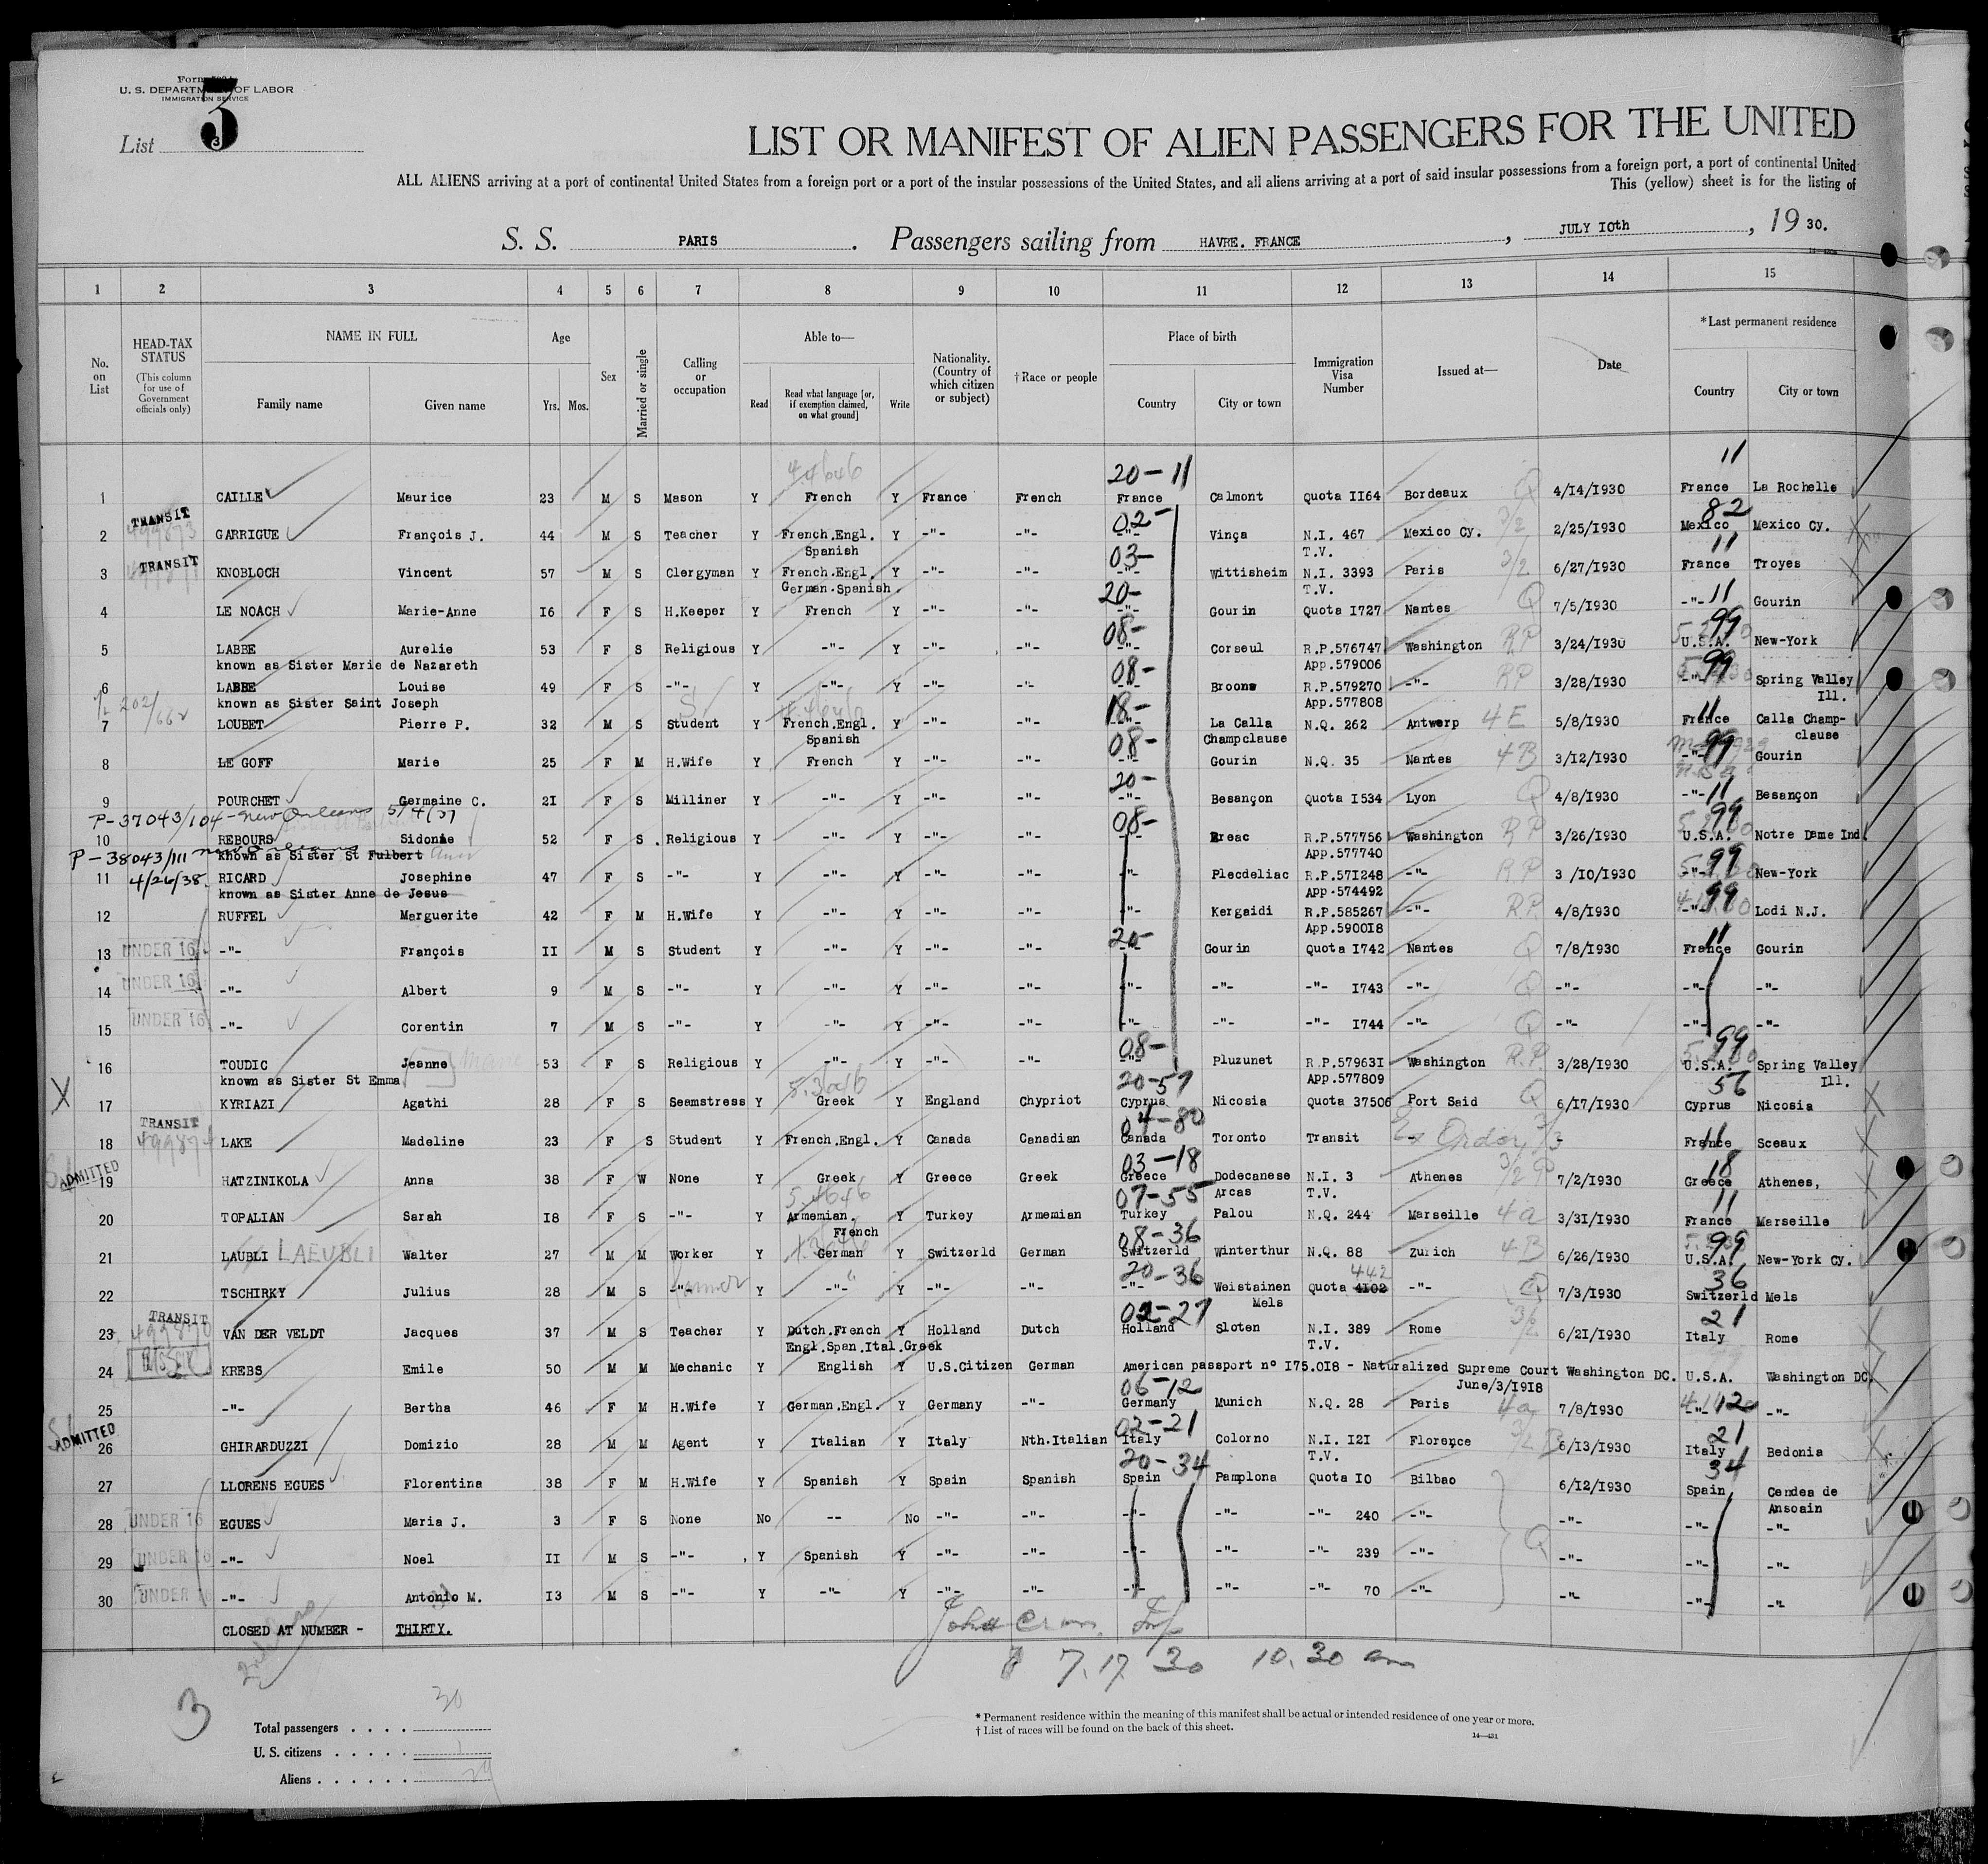 Form
U. S. DEPARTMENT OF LABOR
IMMIGRATION SERVICE
List 3
LIST OR MANIFEST OF ALIEN PASSENGERS FOR THE UNITED
ALL ALIENS arriving at a port of continental United States from a foreign port or a port of the insular possessions of the United States, and all aliens arriving at a port of said insular possessions from a foreign port, a port of continental United
This (yellow) sheet is for the listing of
S. S. PARIS. Passengers sailing from HAVRE. FRANCE, JULY I0th, 1930.
1 2 3 4 5 6 7 8 9 10 11 12 13 14 15
No. on List
HEAD-TAX STATUS
(This column for use of Government officials only)
NAME IN FULL
Family name Given name
Age
Yrs. Mos.
Sex
Married or single
Calling or occupation
Able to—
Read
Read what language [or, if exemption claimed, on what ground]
Write
Nationality. (Country of which citizen or subject)
† Race or people
Place of birth
Country City or town
Immigration Visa Number
Issued at—
Date
*Last permanent residence
Country City or town
20-11 11
1 CAILLE Maurice 23 M S Mason Y French Y France French France Calmont Quota II64 Bordeaux Q 4/14/I930 France La Rochelle
TRANSIT 02- 82
2 GARRIGUE François J. 44 M S Teacher Y French.Engl. Y -"- -"- -"- Vinça N.I. 467 Mexico Cy. 3/2 2/25/I930 Mexico Mexico Cy.
Spanish T.V.
TRANSIT 03- 11
3 KNOBLOCH Vincent 57 M S Clergyman Y French.Engl. Y -"- -"- -"- Wittisheim N.I. 3393 Paris 3/2 6/27/I930 France Troyes
German.Spanish. T.V.
20- 11
4 LE NOACH Marie-Anne I6 F S H.Keeper Y French Y -"- -"- -"- Gourin Quota I727 Nantes Q 7/5/I930 -"- Gourin
08- 99
5 LABBE Aurelie 53 F S Religious Y -"- Y -"- -"- -"- Corseul R.P.576747 Washington RP 3/24/I930 U.S.A. New-York
known as Sister Marie de Nazareth App.579006
08- 99
6 LABBE Louise 49 F S -"- Y -"- Y -"- -"- Broons R.P.579270 -"- RP 3/28/I930 -"- Spring Valley
known as Sister Saint Joseph App.577808 Ill.
18- 11
7 LOUBET Pierre P. 32 M S Student Y French.Engl. Y -"- -"- -"- La Calla N.Q. 262 Antwerp 4E 5/8/I930 France Calla Champ-
Spanish Champclause clause
08- 99
8 LE GOFF Marie 25 F M H.Wife Y French Y -"- -"- -"- Gourin N.Q. 35 Nantes 4B 3/12/I930 -"- Gourin
20- 11
9 POURCHET Germaine C. 2I F S Milliner Y -"- Y -"- -"- -"- Besançon Quota I534 Lyon Q 4/8/I930 -"- Besançon
P-37043/104 - New Orleans 5/4/37
08- 99
10 REBOURS Sidonie 52 F S. Religious Y -"- Y -"- -"- -"- Breac R.P.577756 Washington RP 3/26/I930 U.S.A. Notre Dame Ind.
P-38043/111 New Orleans known as Sister St Fulbert App.577740
99
11 4/26/38. RICARD Josephine 47 F S -"- Y -"- Y -"- -"- -"- Plecdeliac R.P.57I248 -"- R.P. 3 /I0/I930 -"- New-York
known as Sister Anne de Jesus App.574492
99
12 RUFFEL Marguerite 42 F M H.Wife Y -"- Y -"- -"- -"- Kergaidi R.P.585267 -"- R.P. 4/8/I930 -"- Lodi N.J.
App.5900I8
20- 11
13 UNDER 16 -"- François II M S Student Y -"- Y -"- -"- -"- Gourin Quota I742 Nantes Q 7/8/I930 France Gourin
14 UNDER 16 -"- Albert 9 M S -"- Y -"- Y -"- -"- -"- -"- -"- I743 -"- Q -"- -"- -"-
15 UNDER 16 -"- Corentin 7 M S -"- Y -"- Y -"- -"- -"- -"- -"- I744 -"- Q -"- -"- -"-
08- 99
16 TOUDIC Jeanne 53 F S Religious Y -"- Y -"- -"- -"- Pluzunet R.P.57963I Washington R.P. 3/28/I930 U.S.A. Spring Valley
known as Sister St Emma App.577809 Ill.
20-57 56
17 KYRIAZI Agathi 28 F S Seamstress Y Greek Y England Chypriot Cyprus Nicosia Quota 37506 Port Said Q 6/17/I930 Cyprus Nicosia
TRANSIT 04-80 11
18 LAKE Madeline 23 F S Student Y French.Engl. Y Canada Canadian Canada Toronto Transit France Sceaux
ADMITTED 03-18 18
19 HATZINIKOLA Anna 38 F W None Y Greek Y Greece Greek Greece Dodecanese N.I. 3 Athenes 3/2 7/2/I930 Greece Athenes,
Arcas T.V.
07-55 11
20 TOPALIAN Sarah I8 F S -"- Y Armemian. Y Turkey Armemian Turkey Palou N.Q. 244 Marseille 4a 3/31/I930 France Marseille
French
08-36 99
21 LAUBLI LAEUBLI Walter 27 M M Worker Y German Y Switzerld German Switzerld Winterthur N.Q. 88 Zurich 4B 6/26/I930 U.S.A. New-York Cy.
20-36 442 36
22 TSCHIRKY Julius 28 M S -"- Y -"- Y -"- -"- -"- Weistainen Quota 4I02 -"- Q 7/3/I930 Switzerld Mels
Mels
TRANSIT 02-27 21
23 VAN DER VELDT Jacques 37 M S Teacher Y Dutch.French Y Holland Dutch Holland Sloten N.I. 389 Rome 6/2I/I930 Italy Rome
Engl.Span.Ital.Greek T.V.
24 KREBS Emile 50 M M Mechanic Y English Y U.S.Citizen German American passport n° I75.0I8 - Naturalized Supreme Court Washington DC. U.S.A. Washington DC.
June/3/I9I8
06-12 12
25 -"- Bertha 46 F M H.Wife Y German.Engl. Y Germany -"- Germany Munich N.Q. 28 Paris 4a 7/8/I930 -"- -"-
ADMITTED 02-21 21
26 GHIRARDUZZI Domizio 28 M M Agent Y Italian Y Italy Nth.Italian Italy Colorno N.I. I2I Florence 6/13/I930 Italy Bedonia
T.V.
20-34 34
27 LLORENS EGUES Florentina 38 F M H.Wife Y Spanish Y Spain Spanish Spain Pamplona Quota I0 Bilbao 6/12/I930 Spain Cendea de
Ansoain
28 UNDER 16 EGUES Maria J. 3 F S None No -- No -"- -"- -"- -"- -"- 240 -"- -"- -"- -"-
29 UNDER 16 -"- Noel II M S -"- Y Spanish Y -"- -"- -"- -"- -"- 239 -"- Q -"- -"- -"-
30 UNDER 16 -"- Antonio M. I3 M S -"- Y -"- Y -"- -"- -"- -"- -"- 70 -"- -"- -"- -"-
CLOSED AT NUMBER - THIRTY.
7.17.30 10.30 am
3
Total passengers . . . . 30
U. S. citizens . . . . . 1
Aliens . . . . . . 29
* Permanent residence within the meaning of this manifest shall be actual or intended residence of one year or more.
† List of races will be found on the back of this sheet.